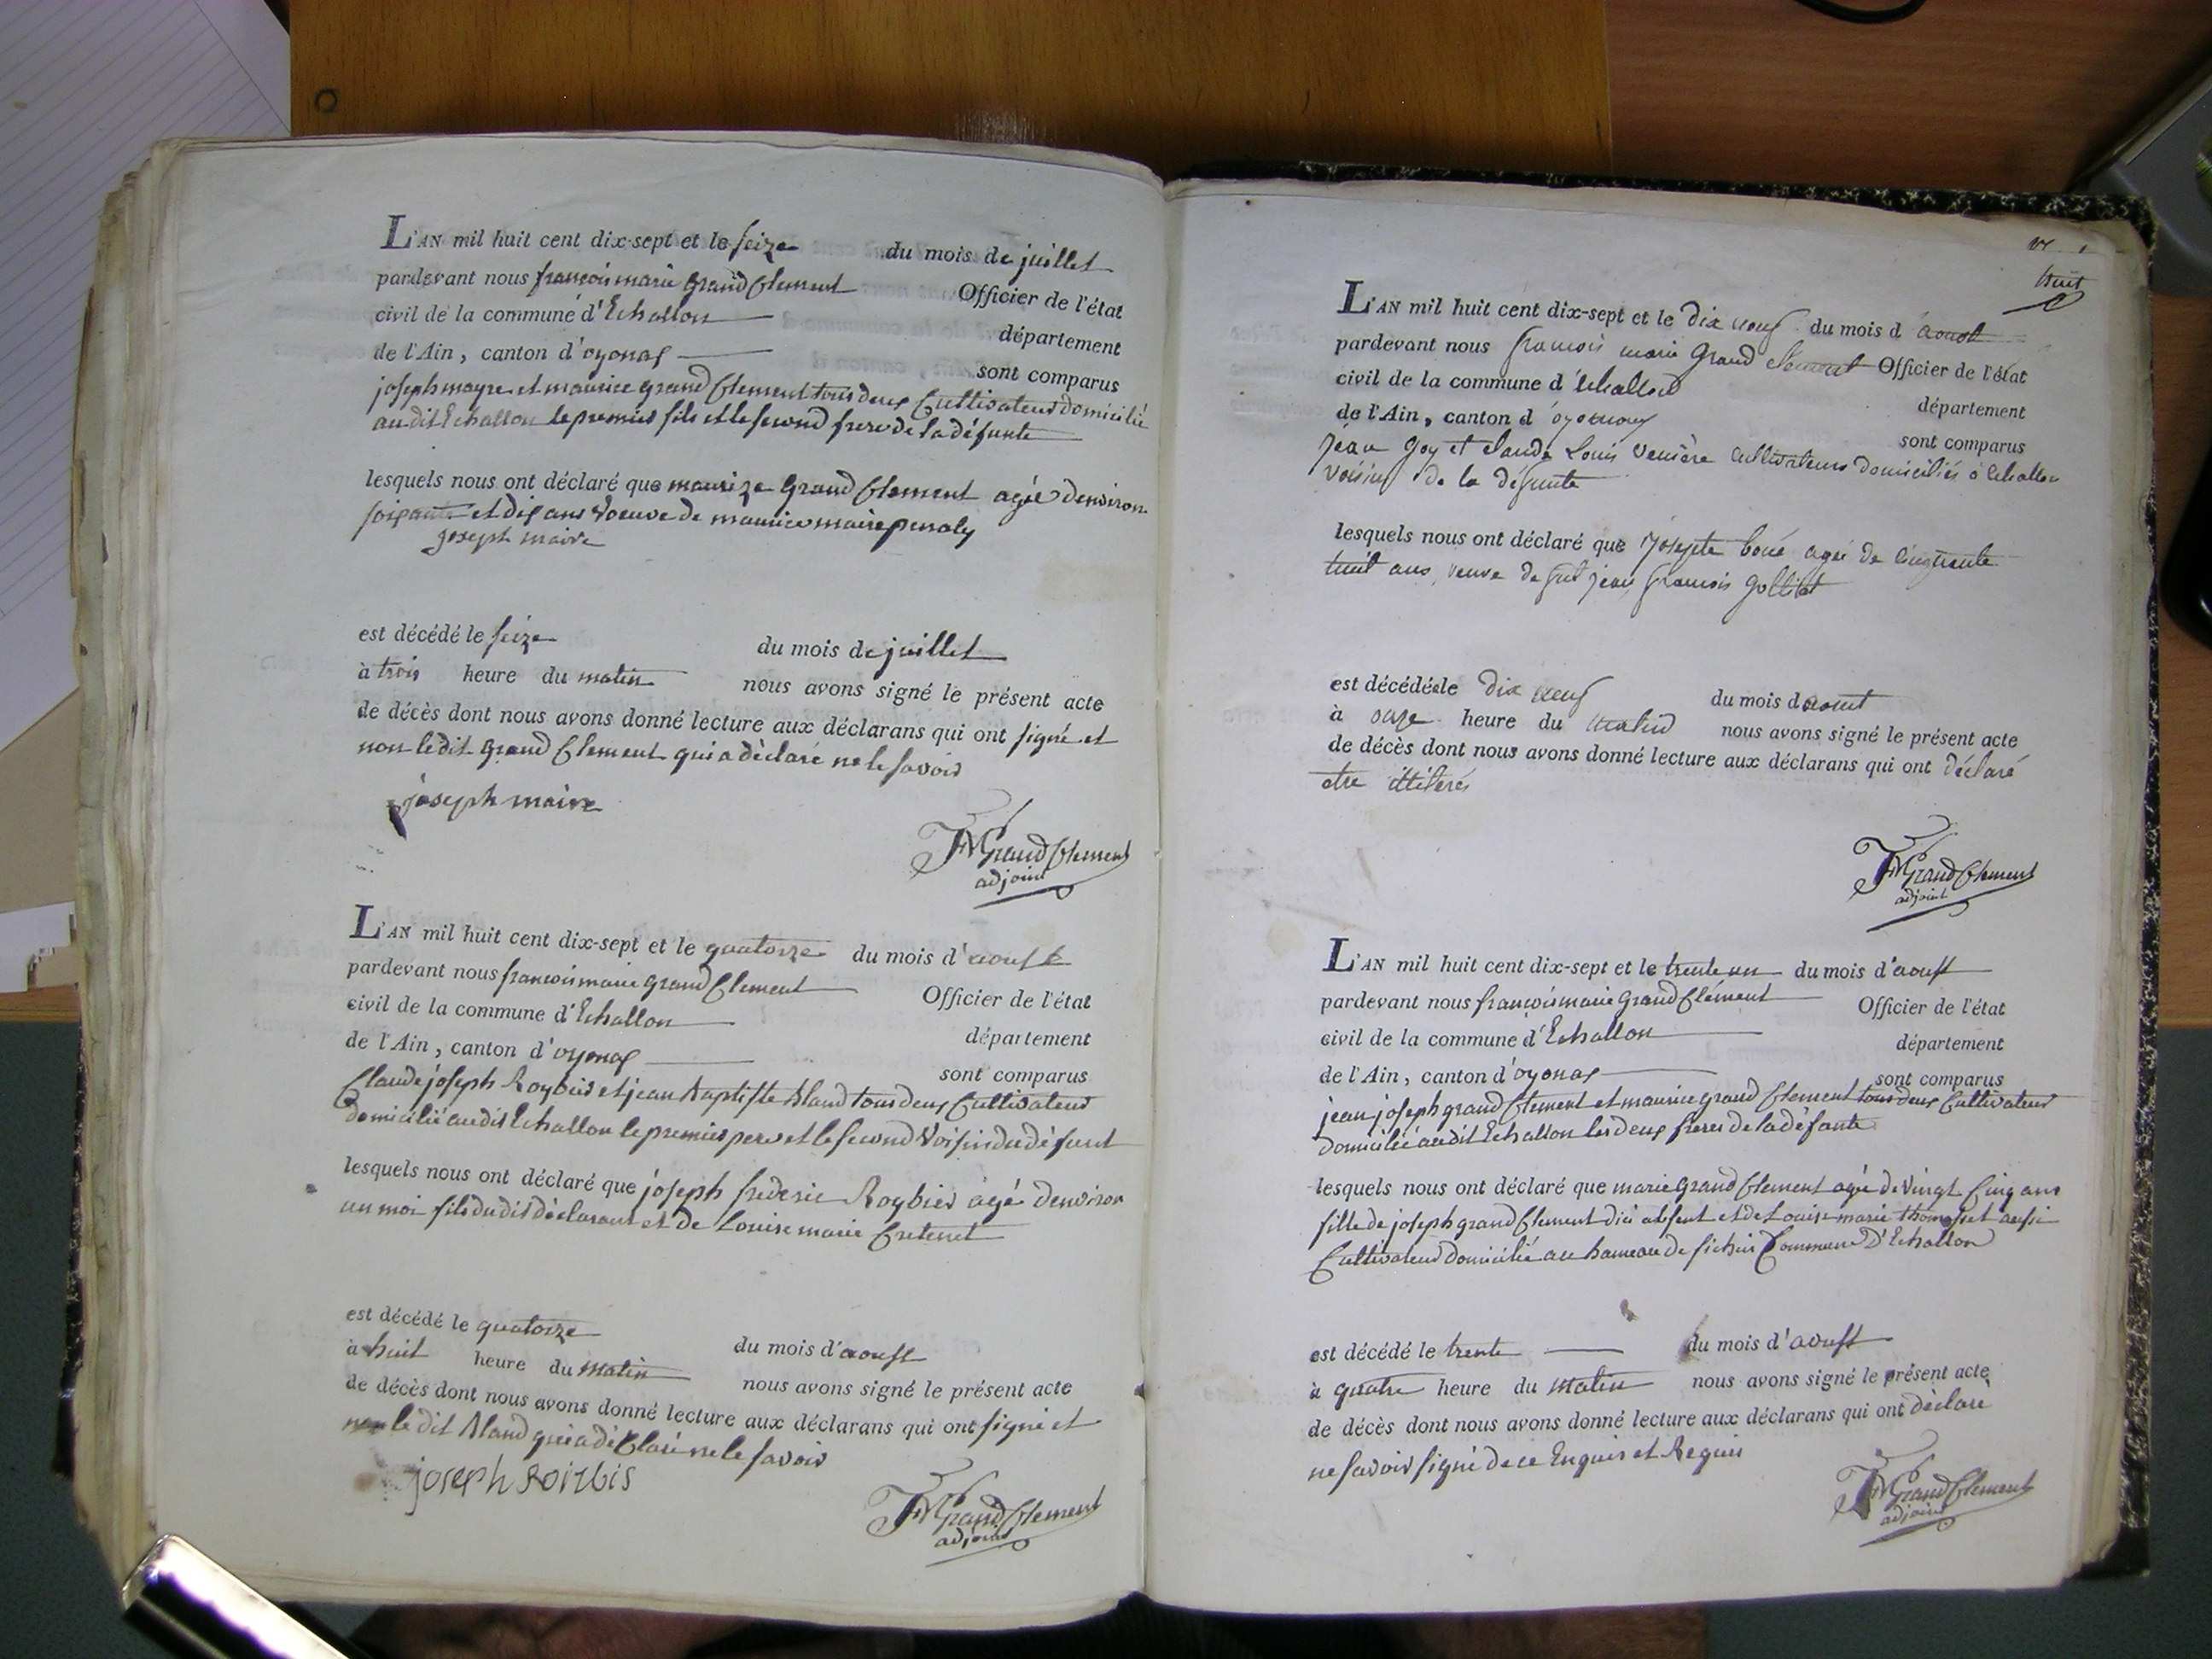 L'AN mil huit cent dix-sept et le seize du mois de juillet
pardevant nous françois marie Grand Clement Officier de l'état
civil de la commune d'Echallon département
de l'Ain, canton d'oyonas sont comparus
joseph mayre et maurice grand Clement tous deux Cultivateurs domicilié
audit Echallon le premier fils et le second frere de la défunte
lesquels nous ont déclaré que maurize Grand Clement agée denviron
soixante et dix ans Voeuve de maurice maire penaly
joseph maire
est décédé le seize du mois de juillet
à trois heure du matin nous avons signé le présent acte
de décès dont nous avons donné lecture aux déclarans qui ont signé et
non ledit Grand Clement qui a déclaré ne le savoir
joseph maire
FM Grand Clement
adjoint
L'AN mil huit cent dix-sept et le quatorze du mois d'aoust
pardevant nous francois marie grand Clement Officier de l'état
civil de la commune d'Echallon département
de l'Ain, canton d'oyonas sont comparus
Claude joseph Roybier et jean Baptiste Bland tous deux Cultivateur
domicilié audit Echallon le premier pere et le second Voisin du défunt
lesquels nous ont déclaré que joseph frederic Roybier agé denviron
un moi fils dudit déclarant et de Louise marie Cretenet
est décédé le quatorze du mois d'aoust
à huit heure du matin nous avons signé le présent acte
de décès dont nous avons donné lecture aux déclarans qui ont signé et
non ledit Bland qui a déClaré ne le savoir
joseph Roirbis
FM Grand Clement
adjoint
huit
L'AN mil huit cent dix-sept et le dix neuf du mois d aoust
pardevant nous francois marie Grand Clement Officier de l'état
civil de la commune d'échallon département
de l'Ain, canton d oyonnax sont comparus
jean Goy et claude Louis Venière cultivateurs domiciliés à échallon
voisins de la défunte
lesquels nous ont déclaré que Josepte boué agée de cinquante
huit ans, veuve de fut jean francois Golliet
est décédée le dix neuf du mois d aoust
à onze heure du matin nous avons signé le présent acte
de décès dont nous avons donné lecture aux déclarans qui ont déclaré
etre illiterés
FM Grand Clement
adjoint
L'AN mil huit cent dix-sept et le trente un du mois d'aoust
pardevant nous françois marie Grand Clément Officier de l'état
civil de la commune d'Echallon département
de l'Ain, canton d'oyonas sont comparus
jean joseph grand Clement et maurice grand Clement tous deux Cultivateur
domicilié audit Echallon les deux freres de la défunte
lesquels nous ont déclaré que marie Grand Clement agée de Vingt Cinq ans
fille de joseph grand Clement dici absent et de Louise marie thomasset aussi
Cultivateur domicilié au hameau de Commune d'Echallon
est décédé le trente du mois d'aoust
à quatre heure du matin nous avons signé le présent acte
de décès dont nous avons donné lecture aux déclarans qui ont déclaré
ne savoir signé de ce Enquis et Requis
FM Grand Clement
adjoint